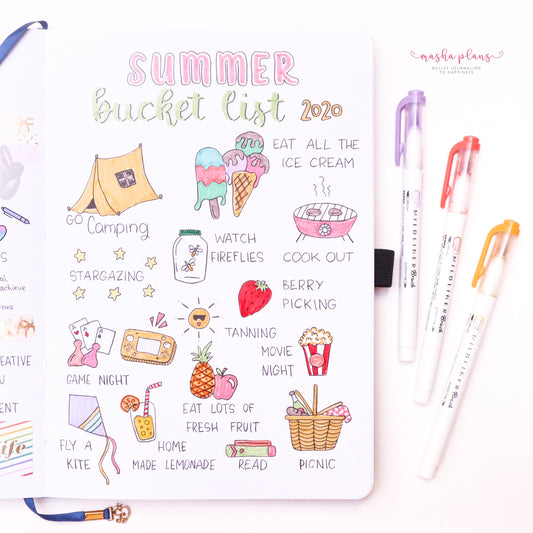 SUMMER
bucket list 2020
masha plans
BULLET JOURNALING
TO HAPPINESS
EAT ALL THE
ICE CREAM
GO Camping
WATCH
FIREFLIES
COOK OUT
STARGAZING
BERRY
PICKING
TANNING
MOVIE
NIGHT
GAME NIGHT
EAT LOTS OF
FRESH FRUIT
FLY A
KITE
HOME
MADE LEMONADE
READ
PICNIC
MILDLINER Brush
MILDLINER Brush
MILDLINER Brush
achieve
EATIVE
ENT
life